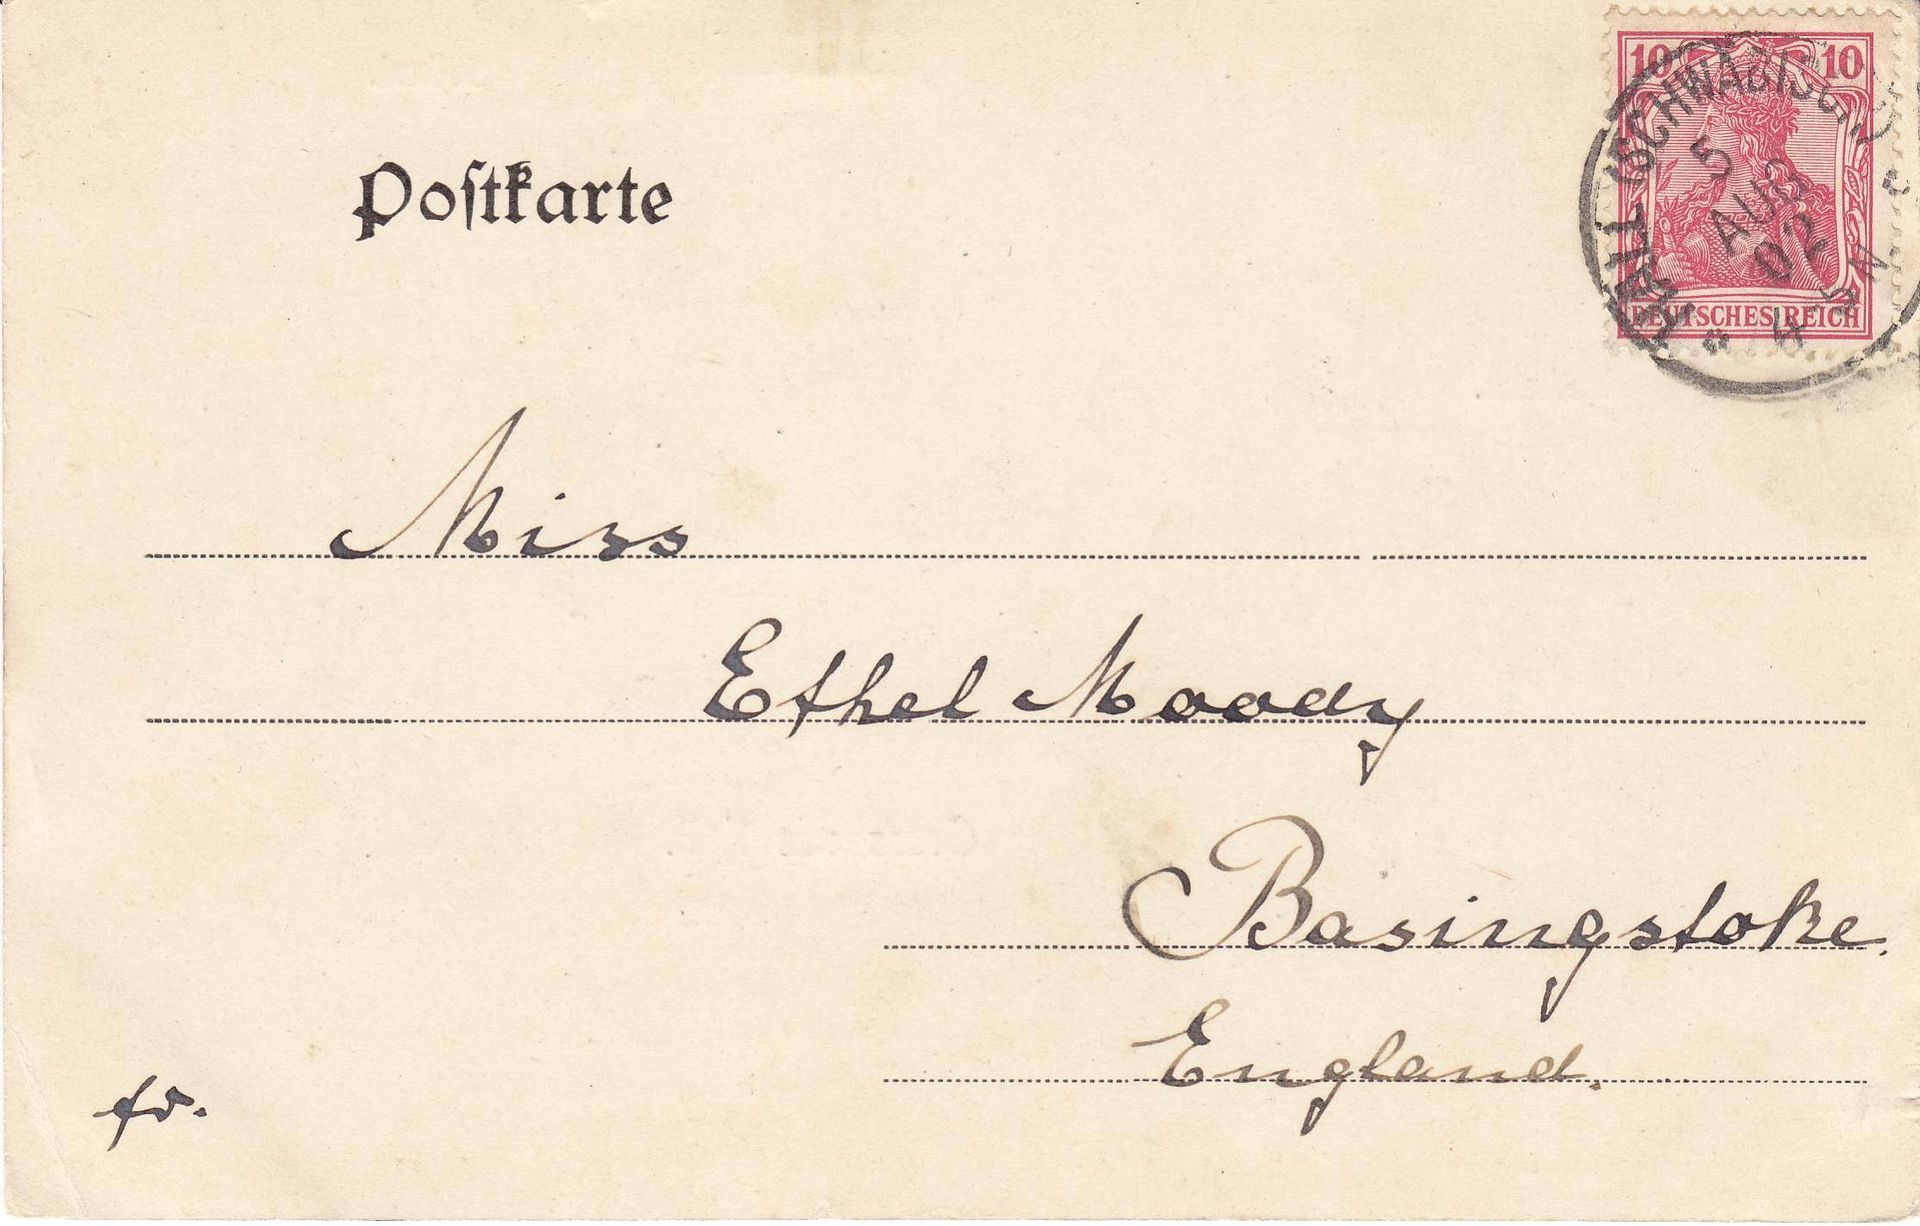 Postkarte
10 10
DEUTSCHES REICH
HALL (SCHWÄBISCH)
5
AUG
02
4-5N
Miss
Ethel Moody
Basingstoke.
England.
fr.